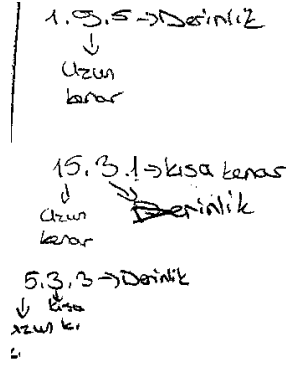 1.9.5→Derinlik
Uzun
kenar
15.3.1→kısa kenar
Uzun Derinlik
kenar
5.3.3→Derinlik
kısa
uzun k.